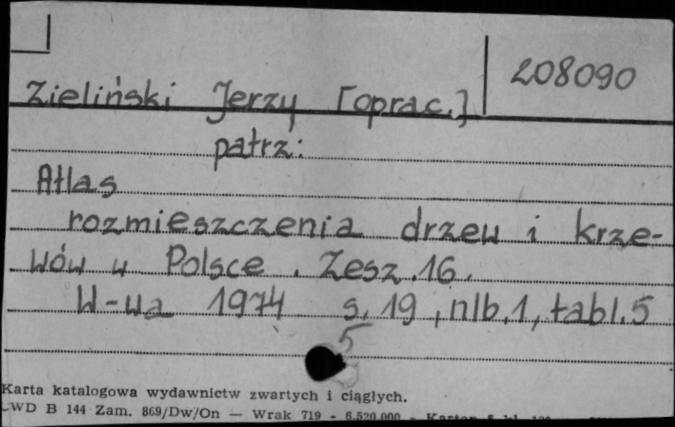 208090
Zieliński Jerzy [oprac.]
patrz:
Atlas
rozmieszczenia drzew i krze-
wów w Polsce. Zesz. 16.
W-wa 1974 s. 19, nlb. 1, tabl. 5
5
Karta katalogowa wydawnictw zwartych i ciągłych.
CWD B 144 Zam. 869/Dw/On — Wrak 719 - 6.520.000 - Karton